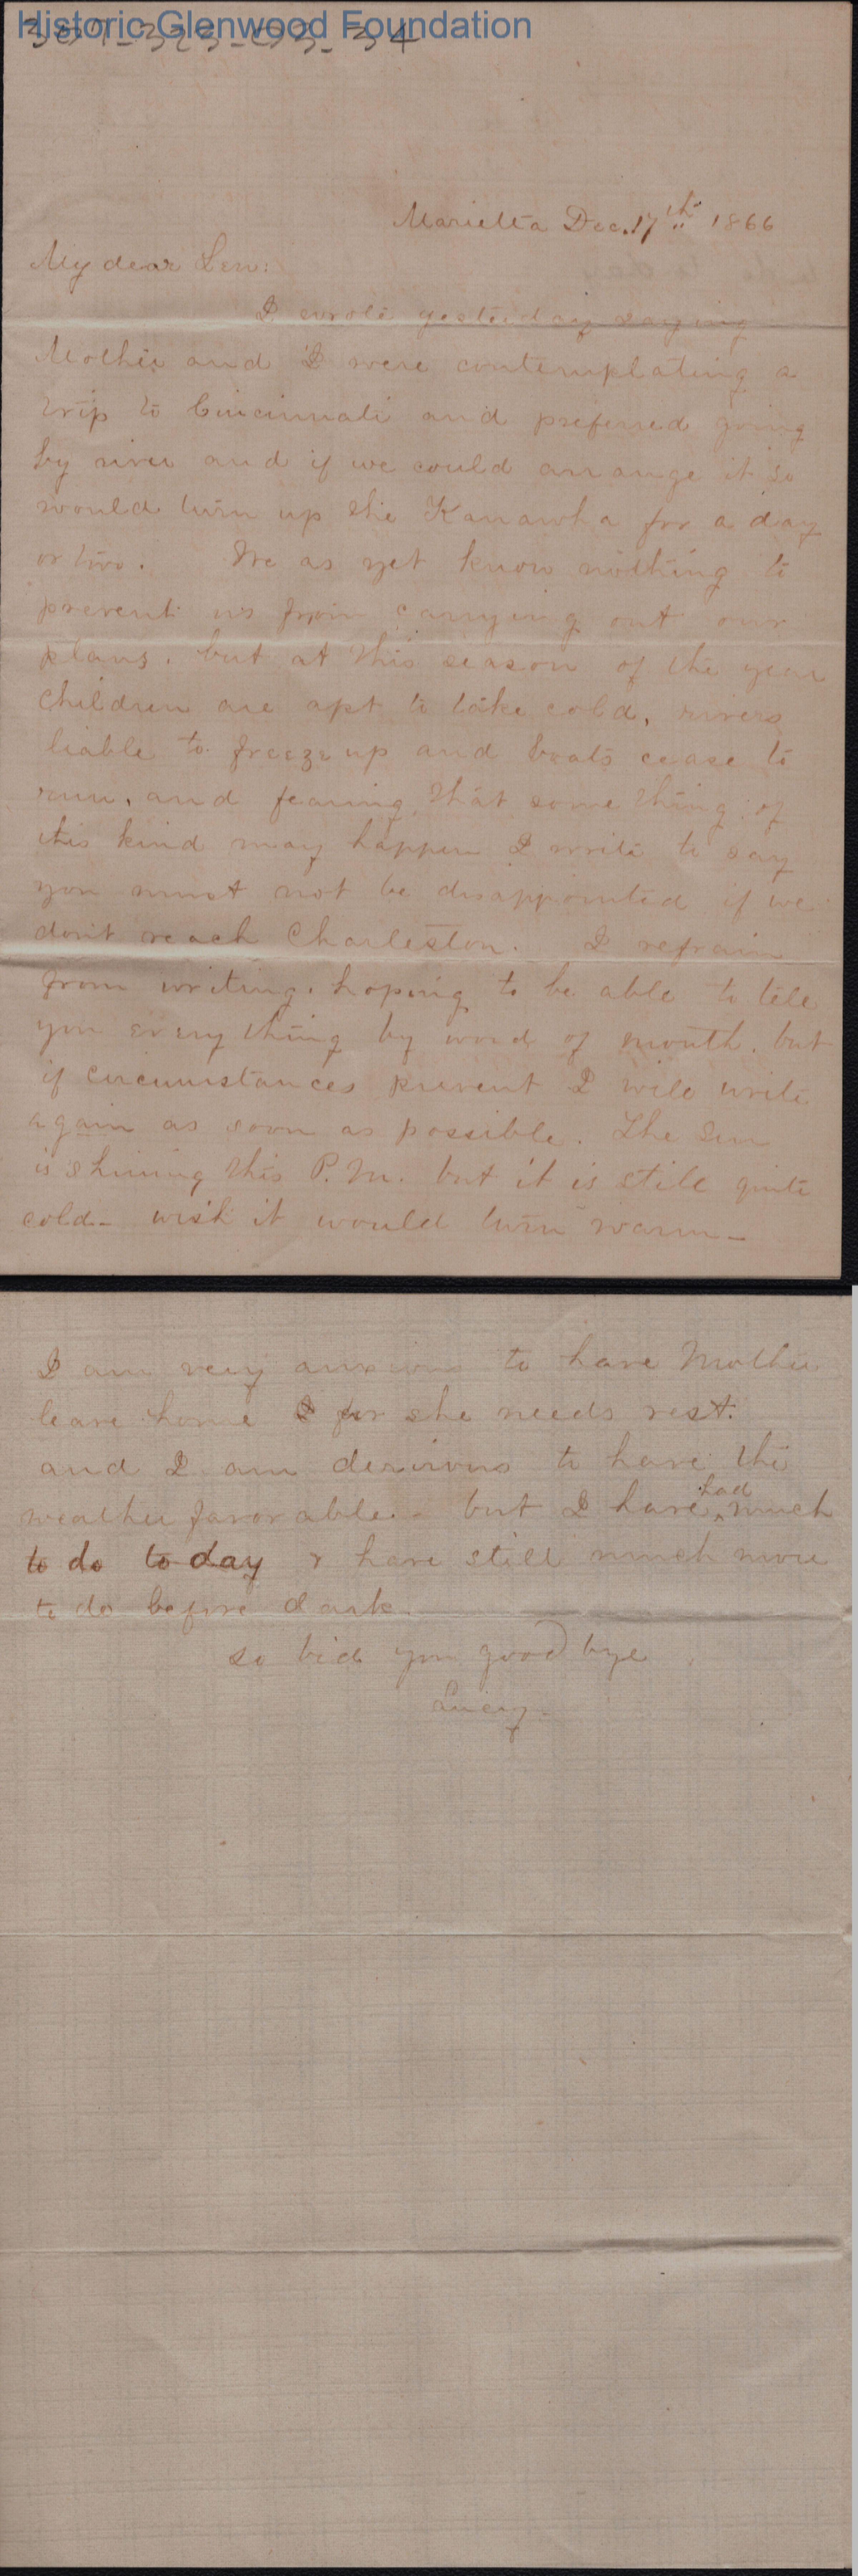 Historic Glenwood Foundation
307-323-03-34
Marietta Dec. 17th 1866
My dear Lew:
I wrote yesterday saying
Mother and I were contemplating a
trip to Cincinnati and preferred going
by river and if we could arrange it so
would turn up the Kanawha for a day
or two. We as yet know nothing to
prevent us from carrying out our
plans, but at this season of the year
children are apt to take cold, rivers
liable to freeze up and boats cease to
run, and fearing that some thing of
this kind may happen I write to say
you must not be disappointed if we
don't reach Charleston. I refrain
from writing, hoping to be able to tell
you every thing by word of mouth, but
if circumstances prevent I will write
again as soon as possible. The sun
is shining this P.M. but it is still quite
cold - wish it would turn warm -
I am very anxious to have Mother
leave home for she needs rest.
and I am desirous to have the
weather favorable. - but I have had much
to do to day & have still much more
to do before dark.
so bid you good bye
Lucy.